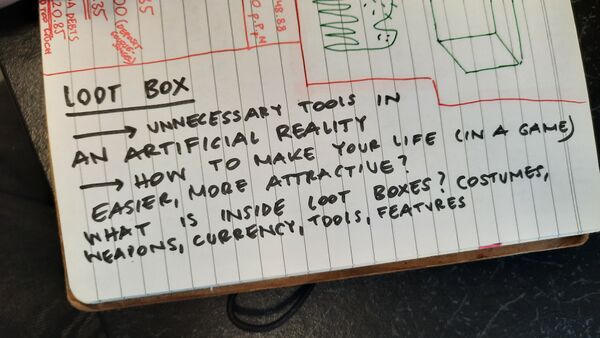 A DEBTS
20.85
TOO MUCH
.85
35
48.88
P.P.M
LOOT BOX
→ UNNECESSARY TOOLS IN
AN ARTIFICIAL REALITY
→ HOW TO MAKE YOUR LIFE (IN A GAME)
EASIER, MORE ATTRACTIVE?
WHAT IS INSIDE LOOT BOXES? COSTUMES,
WEAPONS, CURRENCY, TOOLS, FEATURES